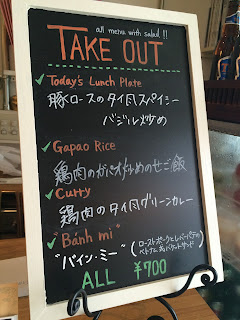 all menu with salad !!
TAKE OUT
Today's Lunch Plate
豚ロースのタイ風スパイシー
バジル炒め
Gapao Rice
鶏肉のガパオ炒めのせご飯
Curry
鶏肉のタイ風グリーンカレー
"Bánh mi"
"バイン・ミー" (ローストポークとレバーパテの
ベトナム風バゲットサンド)
ALL ¥700